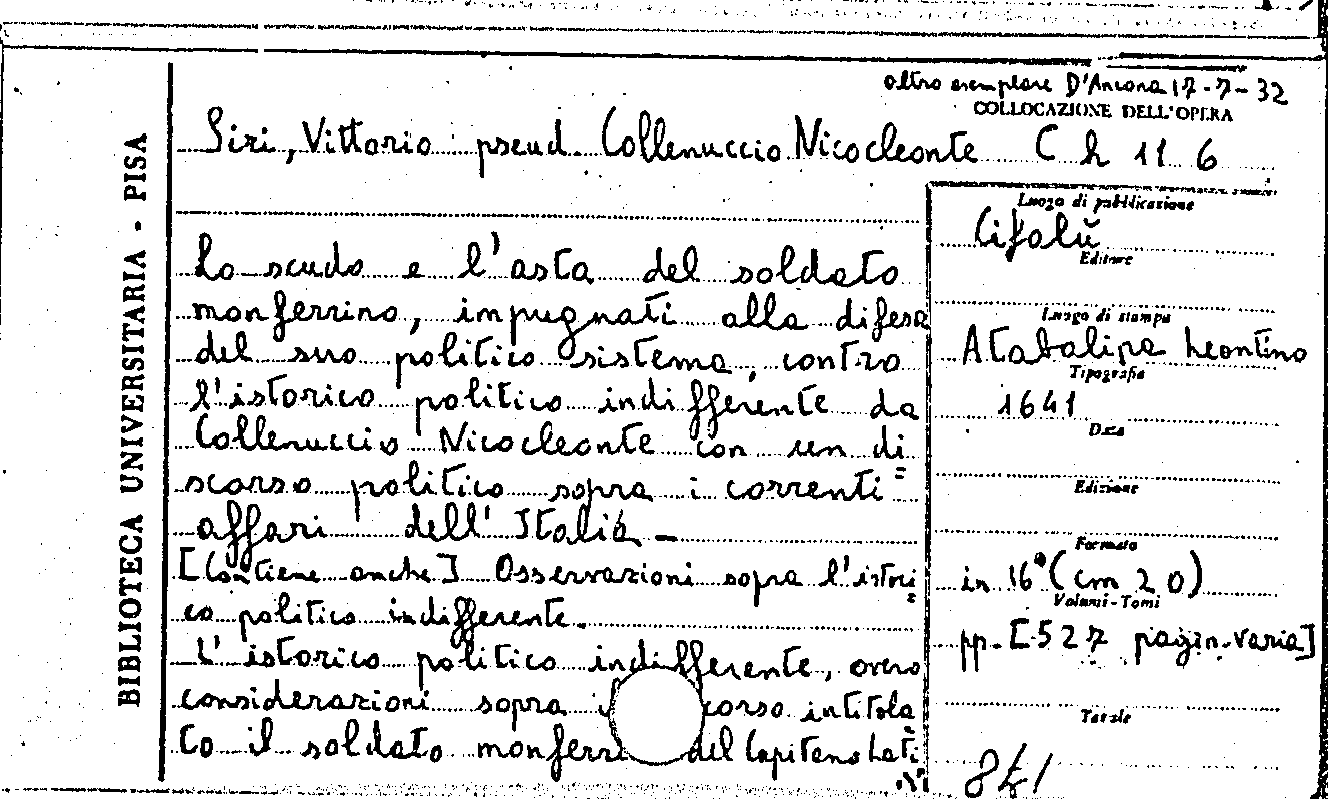 altro esemplare D'Ancona 17-7-32
COLLOCAZIONE DELL'OPERA
Siri, Vittorio pseud. Collenuccio Nicocleonte C h 11 6
BIBLIOTECA UNIVERSITARIA - PISA
Lo scudo e l'asta del soldato
monferrino, impugnati alla difesa
del suo politico sistema, contro
l'istorico politico indifferente da
Collenuccio Nicocleonte con un di
scorso politico sopra i correnti =
affari dell'Italia -
[Contiene anche] Osservazioni sopra l'istori=
co politico indifferente.
L'istorico politico indifferente, overo
considerazioni sopra corso intitola
to il soldato monferri del Capitano Lati
Luogo di pubblicazione
Cifalù
Editore
Luogo di stampa
Atabalipa Leontino
Tipografia
1641
Data
Edizione
Formato
in 16° (cm 20)
Volumi-Tomi
pp. [527 pagin. varia]
Totale